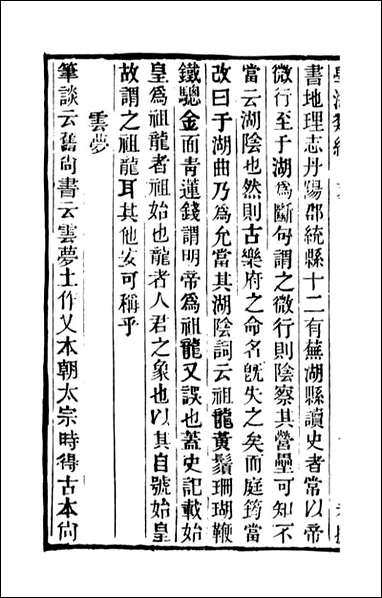 書地理志丹陽郡統縣十二有蕪湖縣讀史者常以帝
微行至于湖爲斷句謂之微行則陰察其營壘可知不
當云湖陰也然則古樂府之命名旣失之矣而庭筠當
改曰于湖曲乃爲允當其湖陰詞云祖龍黃鬚珊瑚鞭
鐵驄金面青蓮錢謂明帝爲祖龍又誤也蓋史記載始
皇爲祖龍者祖始也龍者人君之象也以其自號始皇
故謂之祖龍耳其他安可稱乎
雲夢
筆談云舊尚書云雲夢土作乂本朝太宗時得古本尚